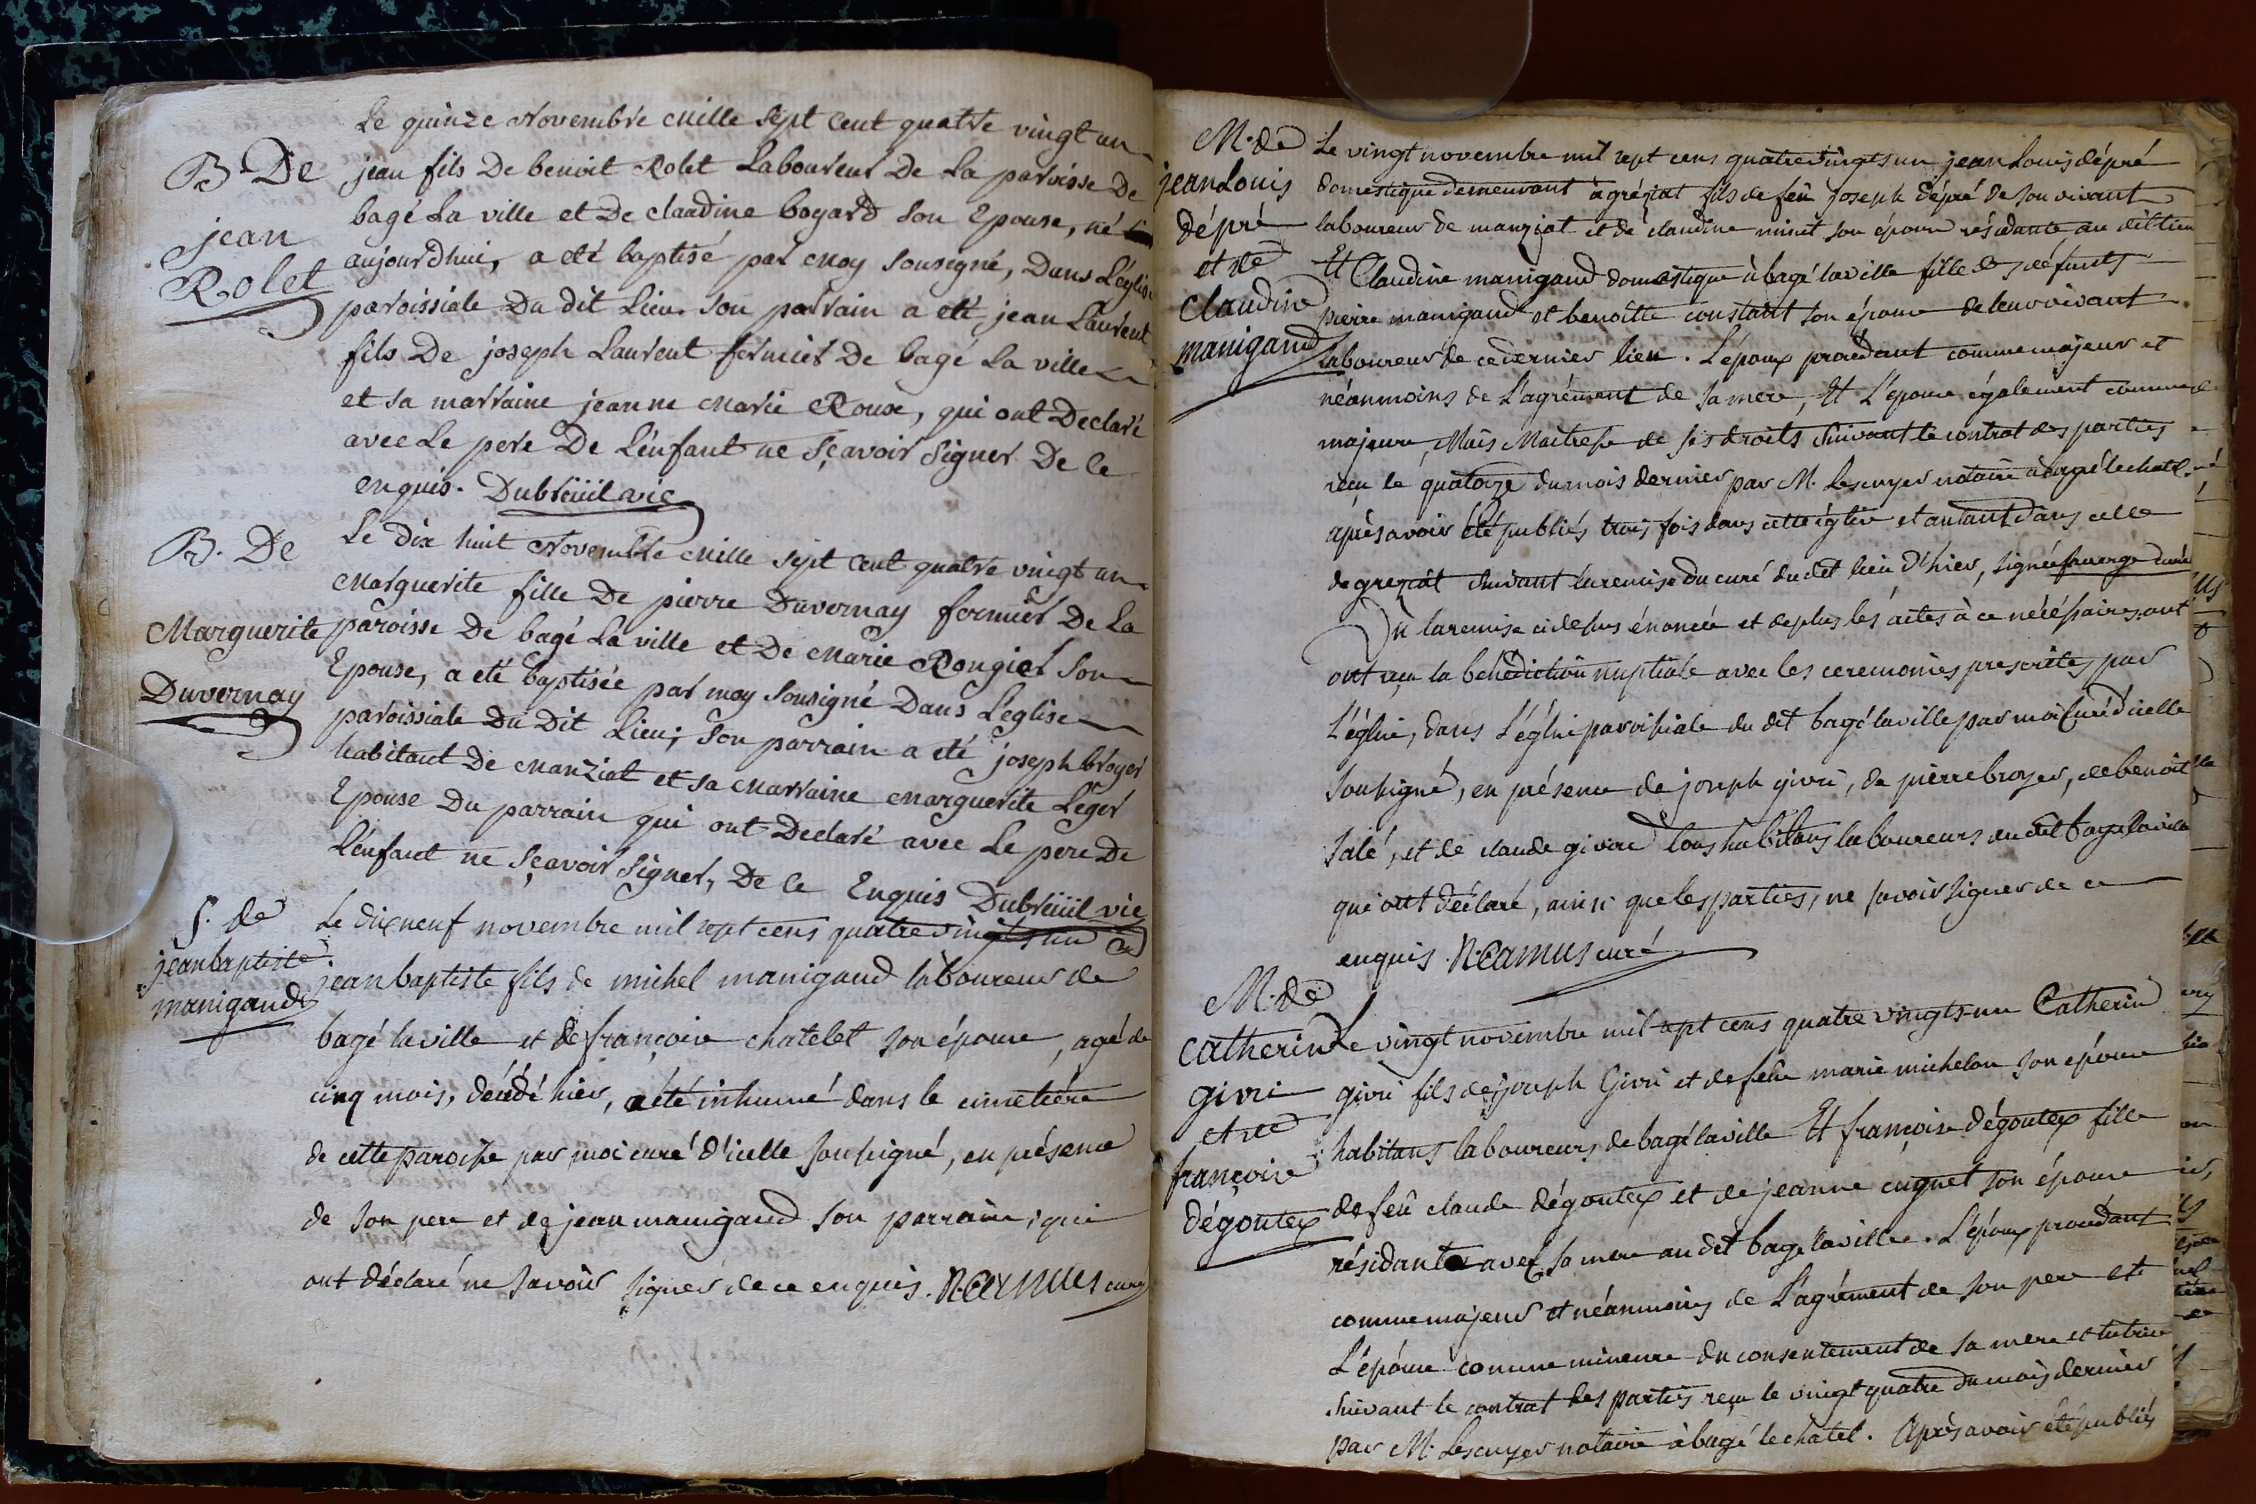 Le quinze Novembre mille sept cent quatre vingt un
B De
jean
Rolet
jean fils De benoit Rolet Laboureur De La paroisse De
bagé La ville et De claudine bogard son Epouse, né
aujourdhui, a eté baptisé par moy sousigné, Dans L'eglise
paroissiale Du dit Lieu. son parrain a eté jean Laurent
fils De joseph Laurent fermier De bagé La ville
et sa marraine jeanne marie Roux, qui ont Declaré
avec Le pere De L'enfant ne sçavoir signer De ce
enquis. Dubreüil vic
B. De
Marguerite
Duvernay
Le Dix huit Novembre mille sept cent quatre vingt un
marguerite fille De pierre Duvernay fermier De La
paroisse De bagé La ville et De marie Rongier son
Epouse, a eté baptisée par moy sousigné Dans L'eglise
paroissiale Du Dit Lieu; son parrain a eté joseph broyer
habitant De manziat et sa marraine marguerite Leger
Epouse Du parrain qui ont Declaré avec Le pere De
L'enfant ne sçavoir signer, De ce Enquis Dubreüil vic
S. de
jean baptiste
manigaud
Le dix neuf novembre mil sept cens quatre vingts un
jean baptiste fils de michel manigaud laboureur de
bagé la ville et de françoise chatelet son épouse, agé de
cinq mois, décédé hier, a été inhumé dans le cimetière
de cette paroisse par moi curé d'icelle soussigné, en présence
de son pere et de jean manigaud son parrain, qui
ont déclaré ne savoir signer de ce enquis. N. Camus curé
M. de
jean Louis
dépré
et de
Claudine
manigaud
Le vingt novembre mil sept cens quatre vingts un jean Louis dépré
domestique demeurant à gréziat fils de feû joseph dépré de son vivant
laboureur de manziat et de claudine minet son épouse résidante au dit lieu
Et Claudine manigaud domestique à bagé la ville fille des defunts
pierre manigaud et benoîtte constant son épouse de leur vivant
laboureurs de ce dernier lieu. L'époux procédant comme majeur et
néanmoins de L'agrément de sa mere, Et L'épouse également comme
majeure, Mais Maitresse de ses droits suivant le contrat des parties
reçu le quatorze du mois dernier par M. Lescuyer notaire à bagé le chatel
après avoir été publiés trois fois dans cette église et autant dans celle
de greziat suivant la remise du curé du dit lieu d'hier, signée curé
Vu la remise ci dessus énoncée et de plus les actes à ce nécéssaires, ont
ont reçu la bénédiction nuptiale avec les ceremonies prescrites par
L'église, dans L'église paroissiale du dit bagé la ville par moi Curé d'icelle
Soussigné, en présence de joseph givri, de pierre broyer, de benoît
Salé, et de claude givri tous habitans laboureurs du dit bagé la ville
qui ont déclaré, ainsi que les parties, ne savoir signer de ce
enquis. N. Camus curé
M. de
Catherin
givri
et de
françoise
dégoutex
Le vingt novembre mil sept cens quatre vingts-un Catherin
givri fils de joseph Givri et de feûe marie michelon son épouse
habitans laboureurs de bagé la ville Et françoise dégoutex fille
de feû claude dégoutex et de jeanne cugnet son épouse
résidante avec sa mere au dit bagé la ville. L'époux procédant
comme majeur et néanmoins de L'agrément de son pere et
L'épouse comme mineure du consentement de sa mere et tutrice
suivant le contrat des parties reçu le vingt quatre du mois dernier
par M. Lescuyer notaire à bagé le chatel. Après avoir été publiés